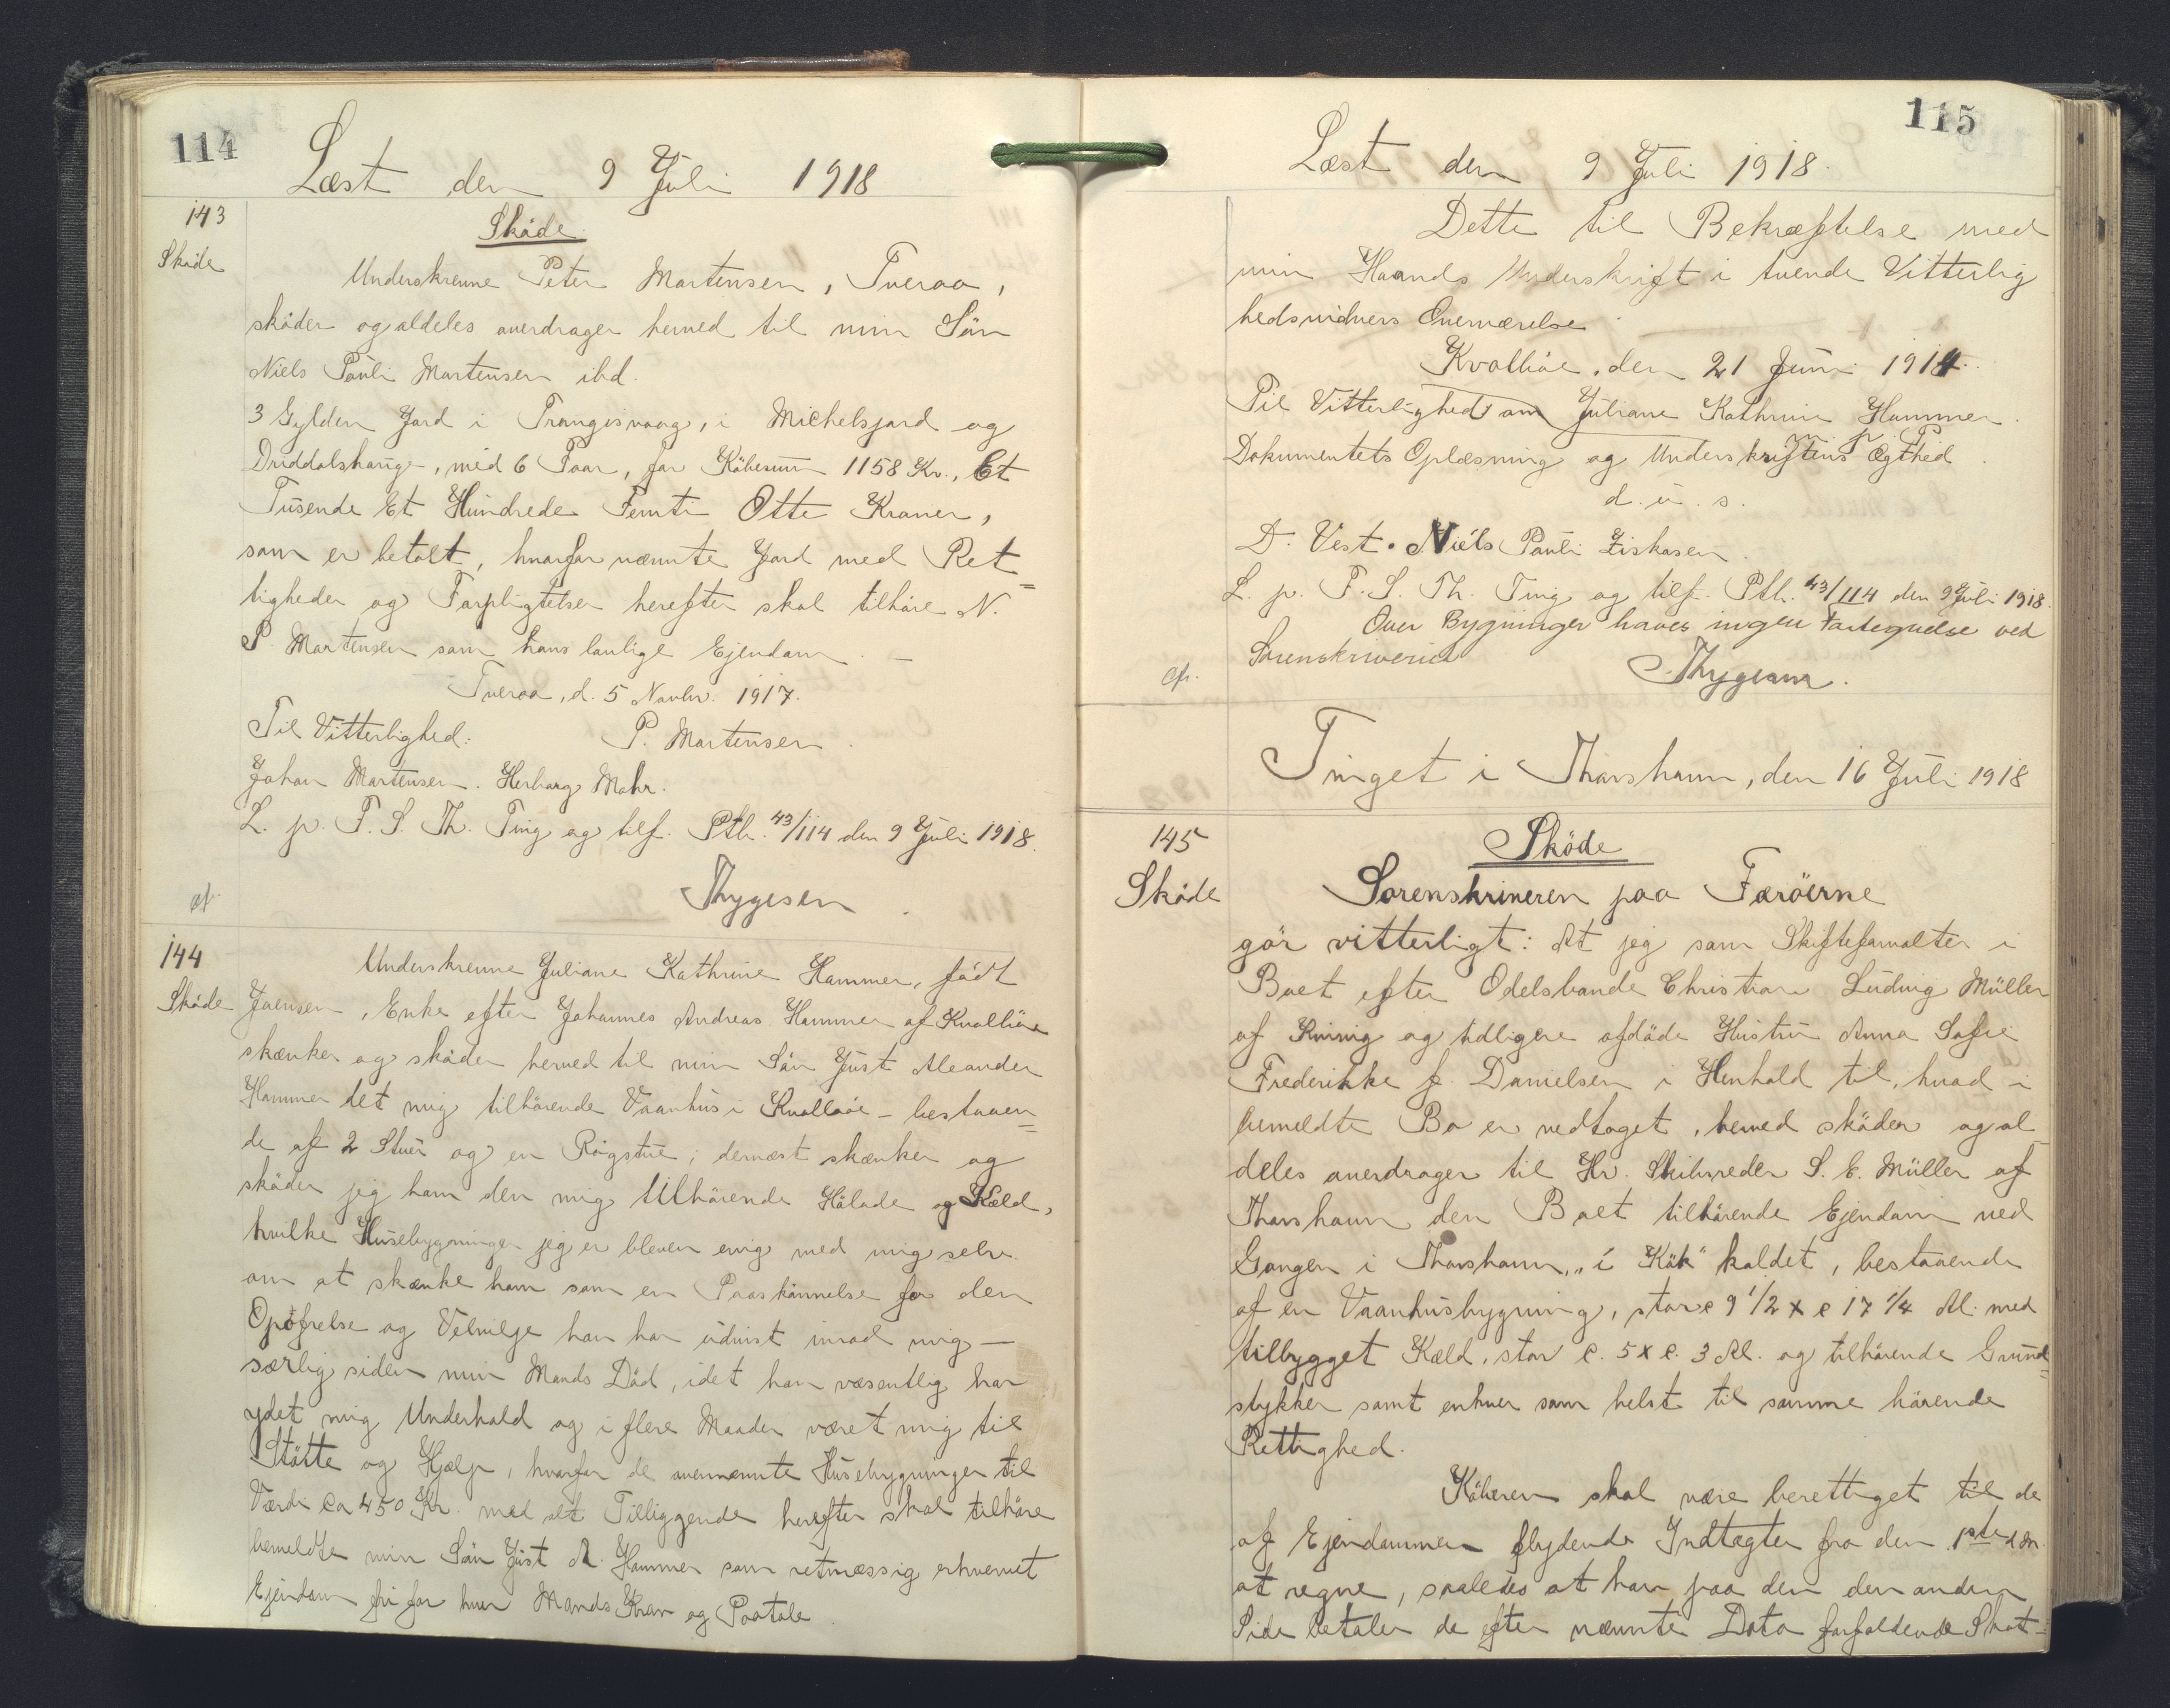 114
Læst den 9 Juli 1918
143
Skøde
Skøde
Underskrevne Peter Mortensen, Tveraa,
skøder og aldeles overdrager herved til min Søn
Niels Pauli Mortensen ibd.
3 Gylden Jord i Trangisvaag, i Michelsjord og
Druddalshauge, med 6 Faar, for Købesum 1158 Kr., Et
Tusende Et Hundrede Femti Otte Kroner,
som er betalt, hvorfor nævnte Jord med Ret=
tigheder og Forpligtelser herefter skal tilhøre N.
P. Mortensen som hans lovlige Ejendom. —
Tveraa, d. 5 Novbr. 1917.
Til Vitterlighed: P. Mortensen.
Johan Mortensen. Herborg Mohr.
L. p. F. S. Th. Ting og tilf. Ptb. 43/114 den 9 Juli 1918.
Thygesen.
cf.
144
Skøde
Underskrevne Juliane Kathrine Hammer, født
Joensen, Enke efter Johannes Andreas Hammer af Kvalbøe
skænker og skøder herved til min Søn Just Aleander
Hammer det mig tilhørende Vaanhus i Kvalbøe – bestaaen=
de af 2 Stuer og en Røgstue; dernæst skænker og
skøder jeg ham den mig tilhørende Hølade og Kæld,
hvilke Husebygninger jeg er bleven enig med mig selv
om at skænke ham som en Paaskønnelse for den
Opofrelse og Velvilje han har udvist imod mig —
særlig siden min Mands Død, idet han væsentlig har
ydet mig Underhold og i flere Maader været mig til
Støtte og Hjælp, hvorfor de ovennævnte Husebygninger til
Værdi ca 450 Kr. med alt Tilliggende herefter skal tilhøre
bemeldte min Søn Just A. Hammer som retmæssig erhvervet
Ejendom fri for hver Mands Krav og Paatale
115
Læst den 9 Juli 1918.
Dette til Bekræftelse med
min Haands Underskrift i tvende Vitterlig
hedsvidners Overværelse.
Kvalbøe, den 21 Juni 1914.
Til Vitterlighed om Juliane Kathrine Hammer.
Dokumentets Oplæsning og Underskriftens Ægthed
d. u. s.
D. Vest. Niels Pauli
L. p. F. S. Th. Ting og tilf. Ptb. 43/114 den 9 Juli 1918.
Over Bygninger haves ingen Fortegnelse ved
Sorenskriveriet
Thygesen.
cf.
Tinget i Thorshavn, den 16 Juli 1918
145
Skøde
Skøde
Sorenskriveren paa Færøerne
gör vitterligt: At jeg som Skifteforvalter i
Boet efter Odelsbonde Christian Ludvig Müller
af Kvivig og tidligere afdøde Hustru Anna Sofie
Frederikke f. Danielsen i Henhold til, hvad i
bemeldte Bo er vedtaget, herved skøder og al
deles overdrager til Hr. Skibsreder S. E. Müller af
Thorshavn den Boet tilhørende Ejendom ved
Gongen i Thorshavn, „i Kåk" kaldet, bestaaende
af en Vaanhusbygning, stor c 9 1/2 x c 17 1/4 Al. med
tilbygget Kæld, stor c. 5 x c. 3 Al. og tilhørende Grund=
stykker samt enhver som helst til samme hørende
Rettighed.
Køberen skal være berettiget til de
af Ejendommen flydende Indtægter fra den 1ste d. M.
at regne, saaledes at han paa den den anden
Side betaler de efter nævnte Dato forfaldende Skat=